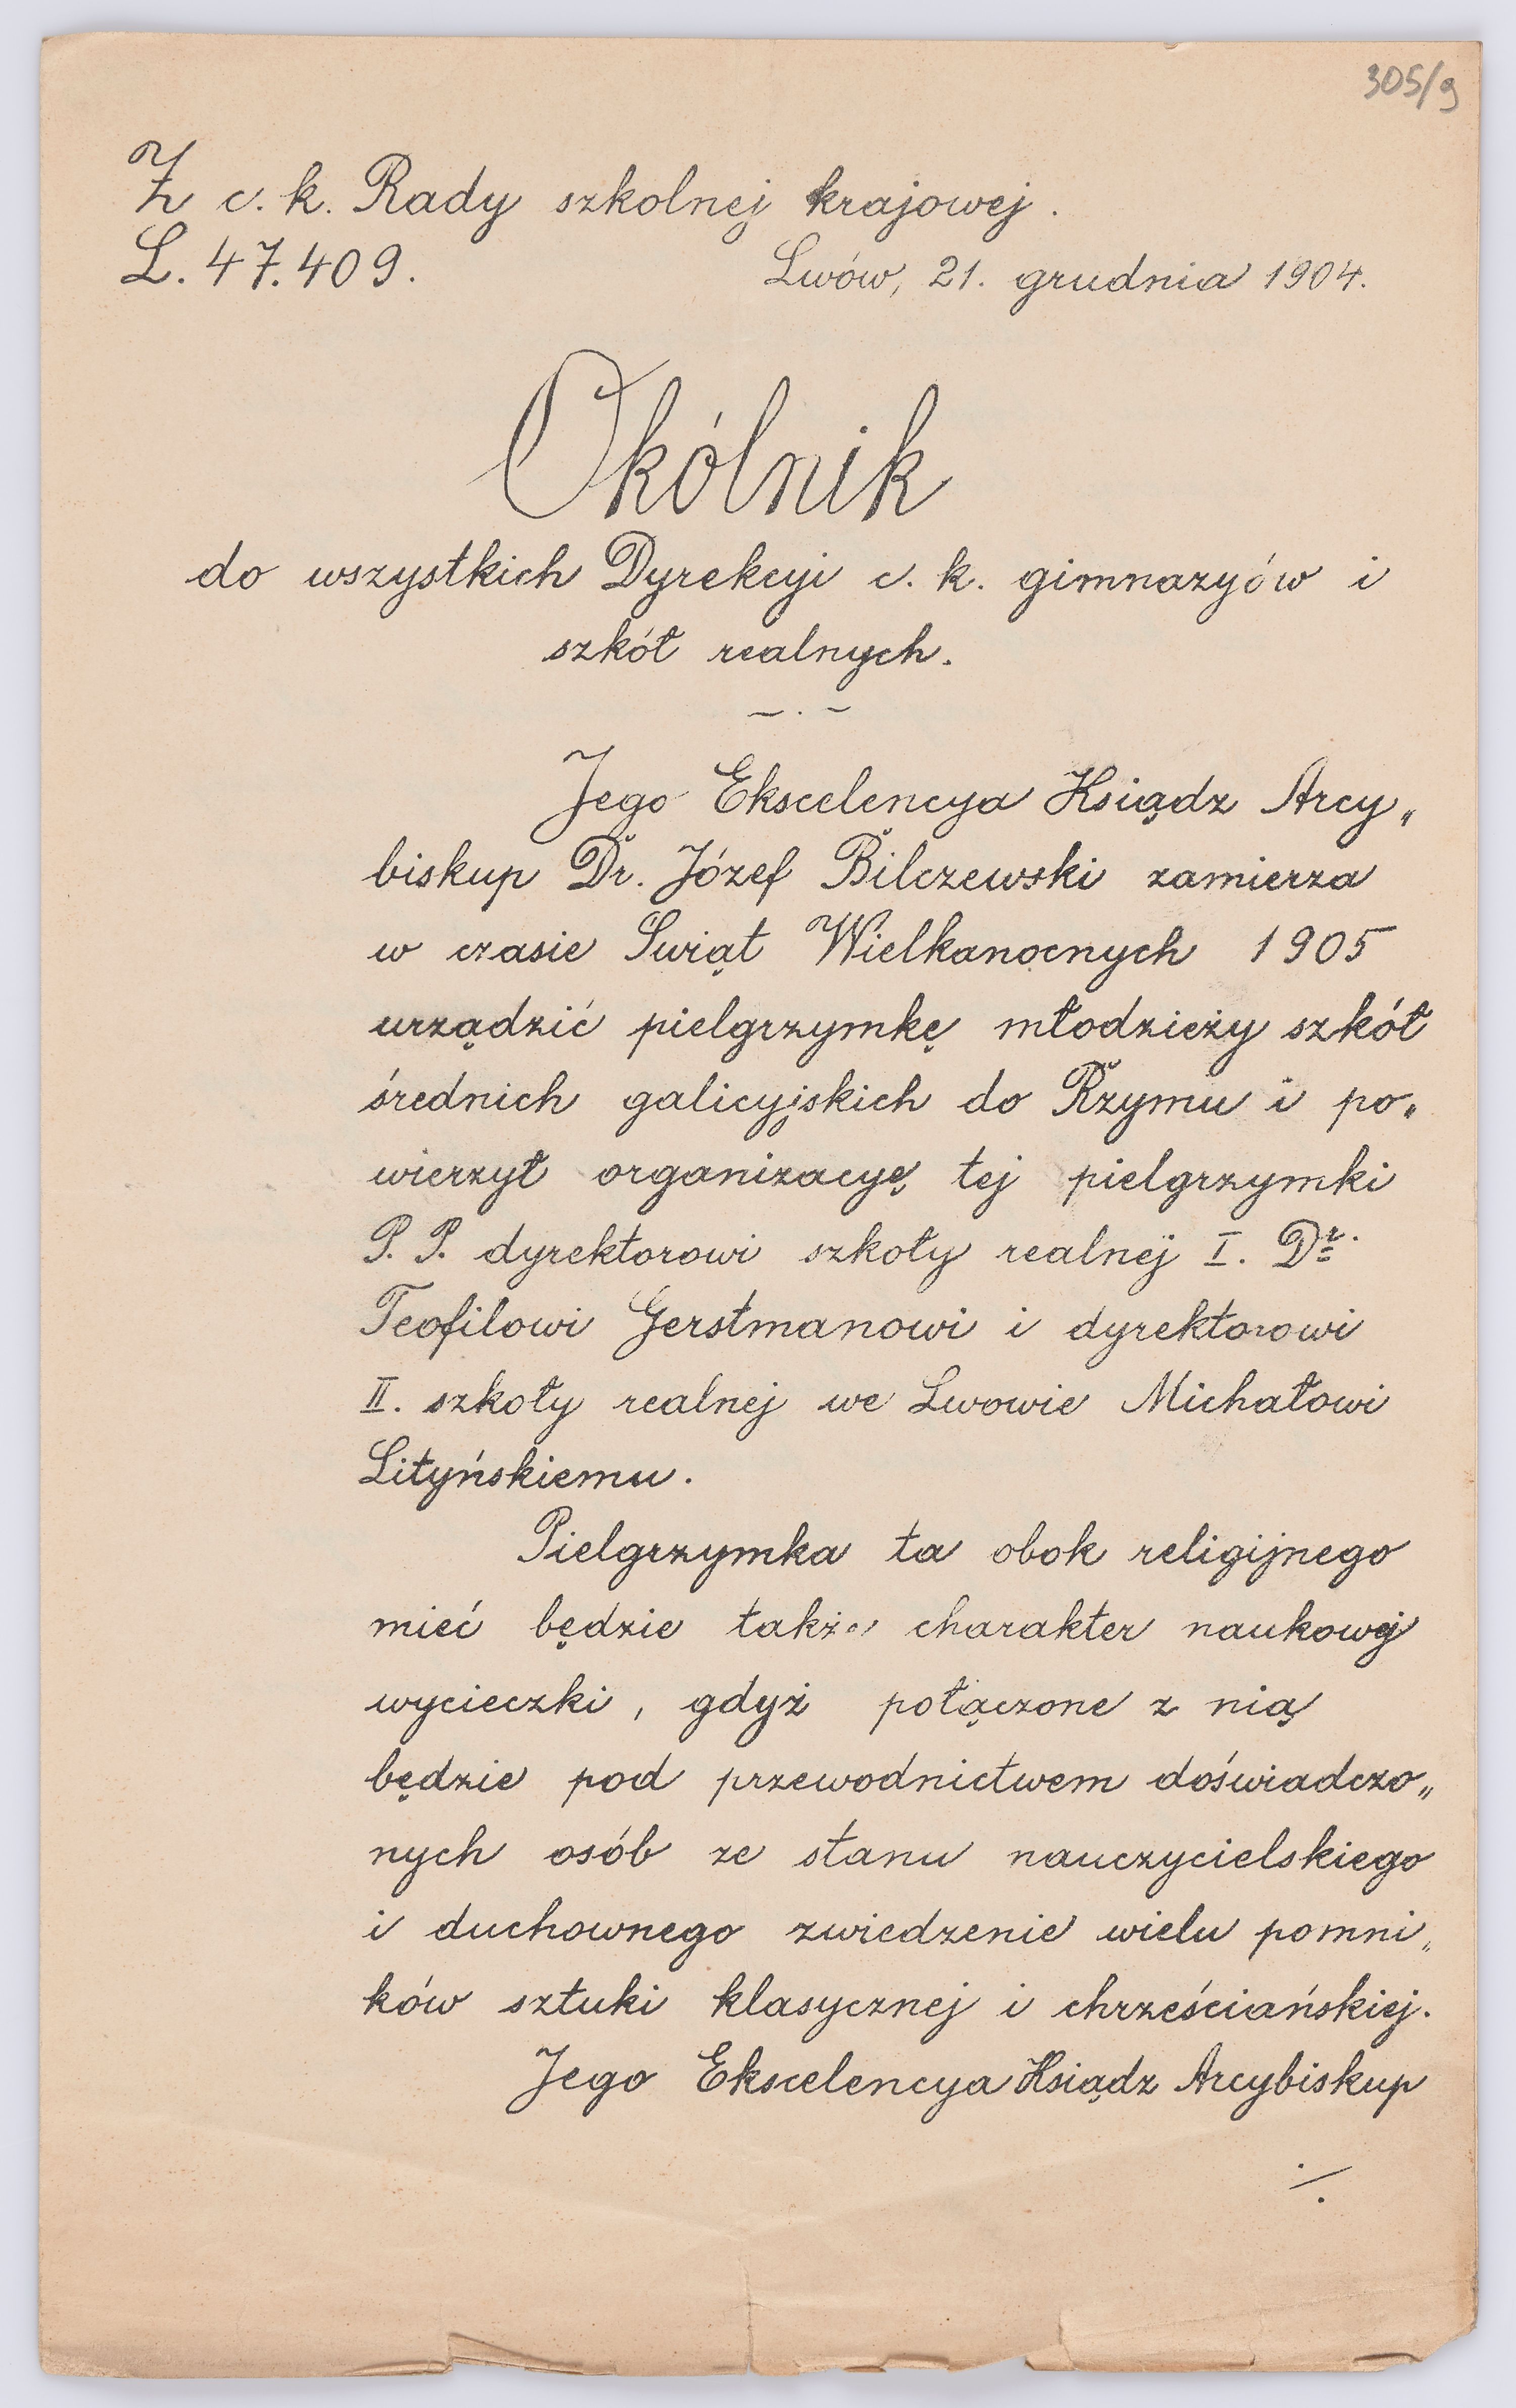 305/9
Z c. k. Rady szkolnej krajowej.
L. 47.409.
Lwów, 21. grudnia 1904.
Okólnik
do wszystkich Dyrekcyi c. k. gimnazyów i
szkół realnych.
Jego Ekscelencya Ksiądz Arcy„
biskup Dr. Józef Bilczewski zamierza
w czasie Świąt Wielkanocnych 1905
urządzić pielgrzymkę młodzieży szkół
średnich galicyjskich do Rzymu i po„
wierzył organizacyę tej pielgrzymki
P. P. dyrektorowi szkoły realnej I. Dr.
Teofilowi Gerstmanowi i dyrektorowi
II. szkoły realnej we Lwowie Michałowi
Lityńskiemu.
Pielgrzymka ta obok religijnego
mieć będzie także charakter naukowej
wycieczki, gdyż połączone z nią
będzie pod przewodnictwem doświadczo„
nych osób ze stanu nauczycielskiego
i duchownego zwiedzenie wielu pomni„
ków sztuki klasycznej i chrześciańskiej.
Jego Ekscelencya Ksiądz Arcybiskup
./.